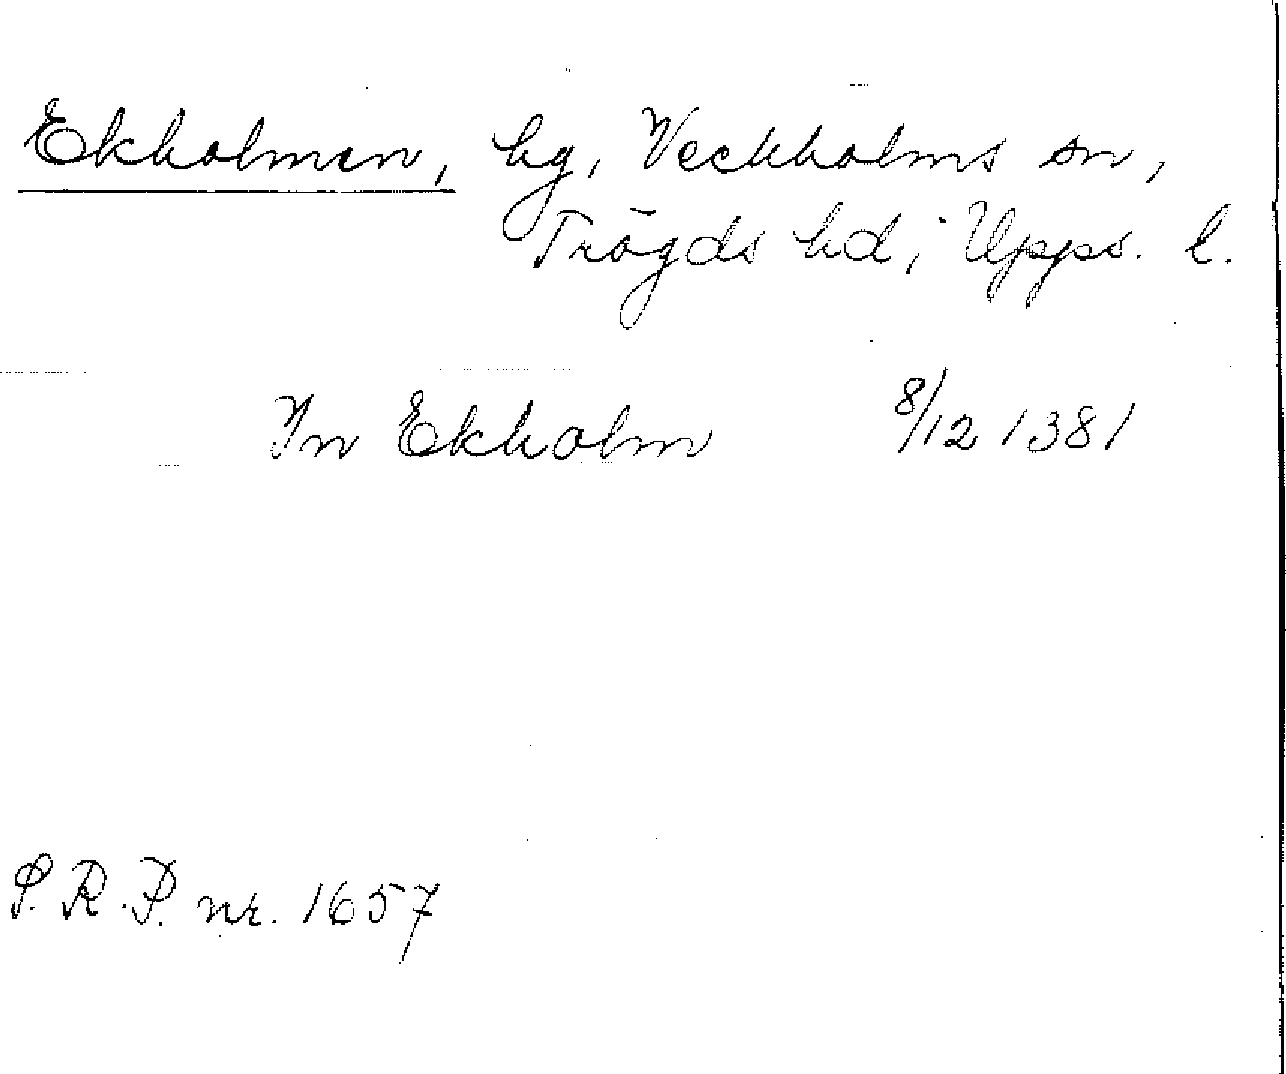 Ekholmen, hg, Veckholms sn,
Trögds hd, Upps. l.
In Ekholm 8/12 1381
S.R.P. nr. 1657